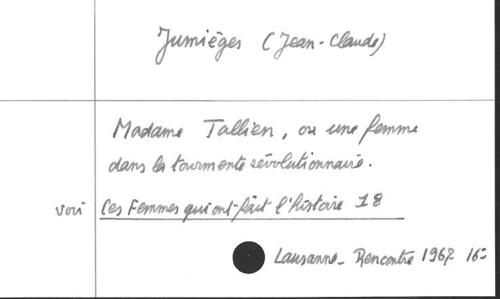 Jumièges (Jean-Claude)
Madame Tallien, ou une femme
dans la tourmente révolutionnaire.
voir Ces Femmes qui ont fait l'histoire 18
Lausanne - Rencontre 1967 16°